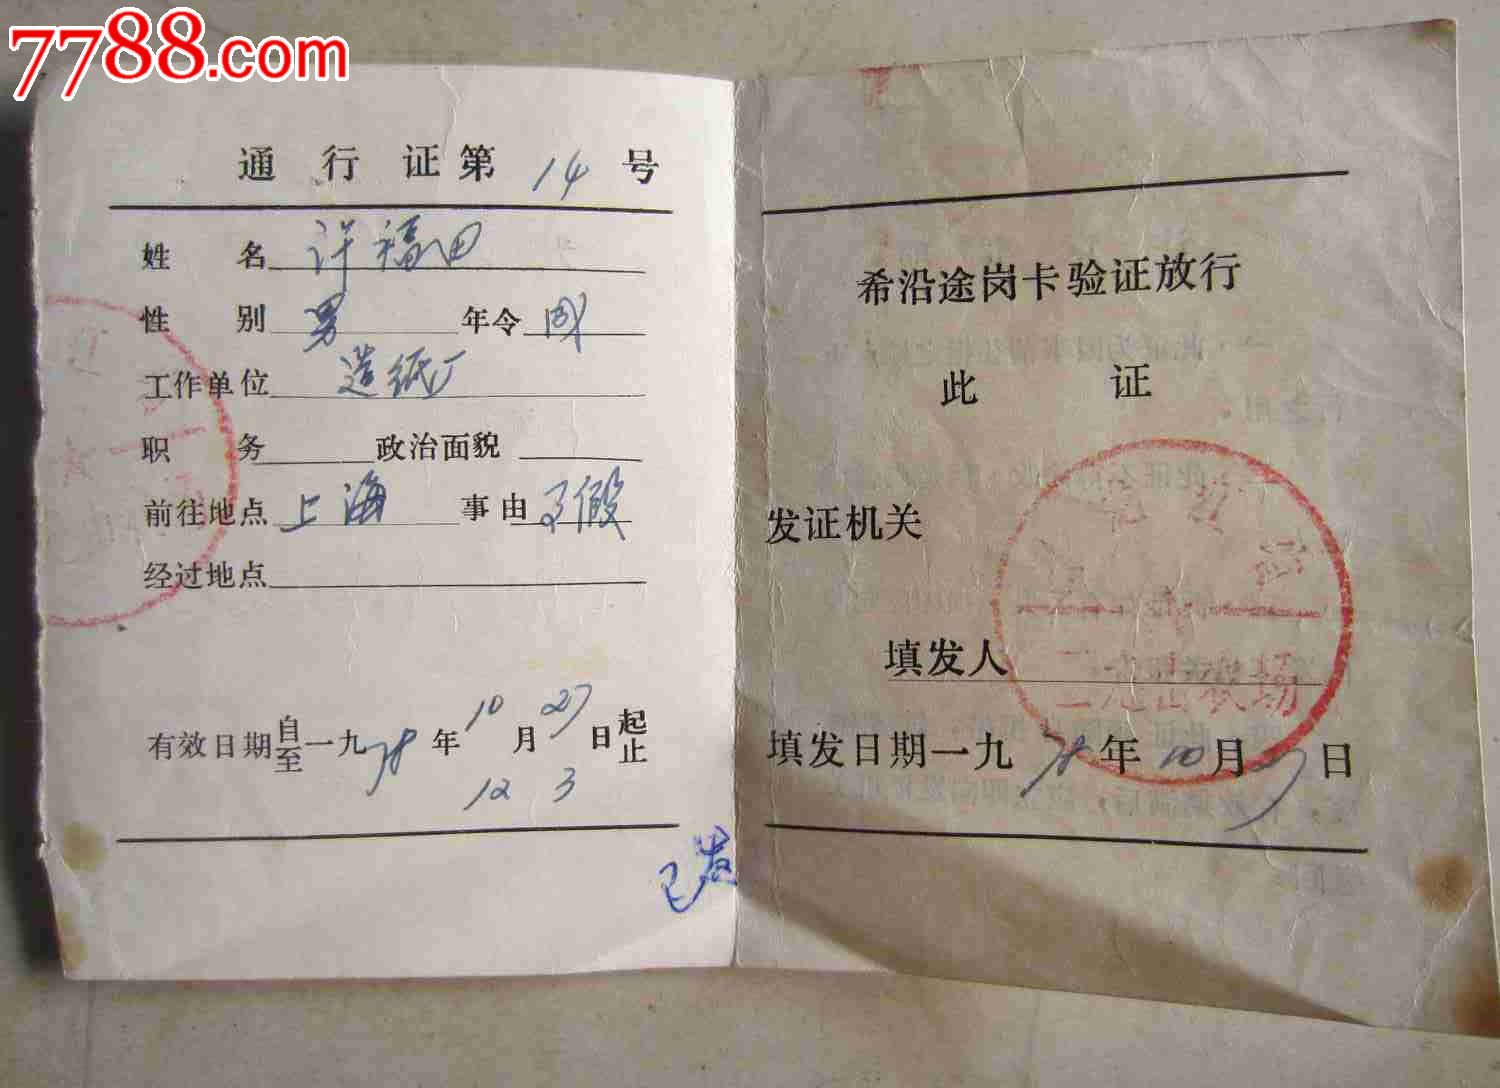 7788.com
通行证第 14 号
姓名 许福田
性别 男 年令 成
工作单位 造纸厂
职务 政治面貌
前往地点 上海 事由 了假
经过地点
有效日期自一九78年10月27日起
至 12 3 止
已发
希沿途岗卡验证放行
此证
发证机关
填发人
填发日期一九78年10月27日